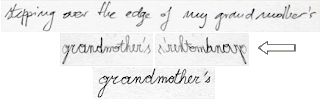 stepping over the edge of my grandmother's
grandmother's grandmother's
grandmother's